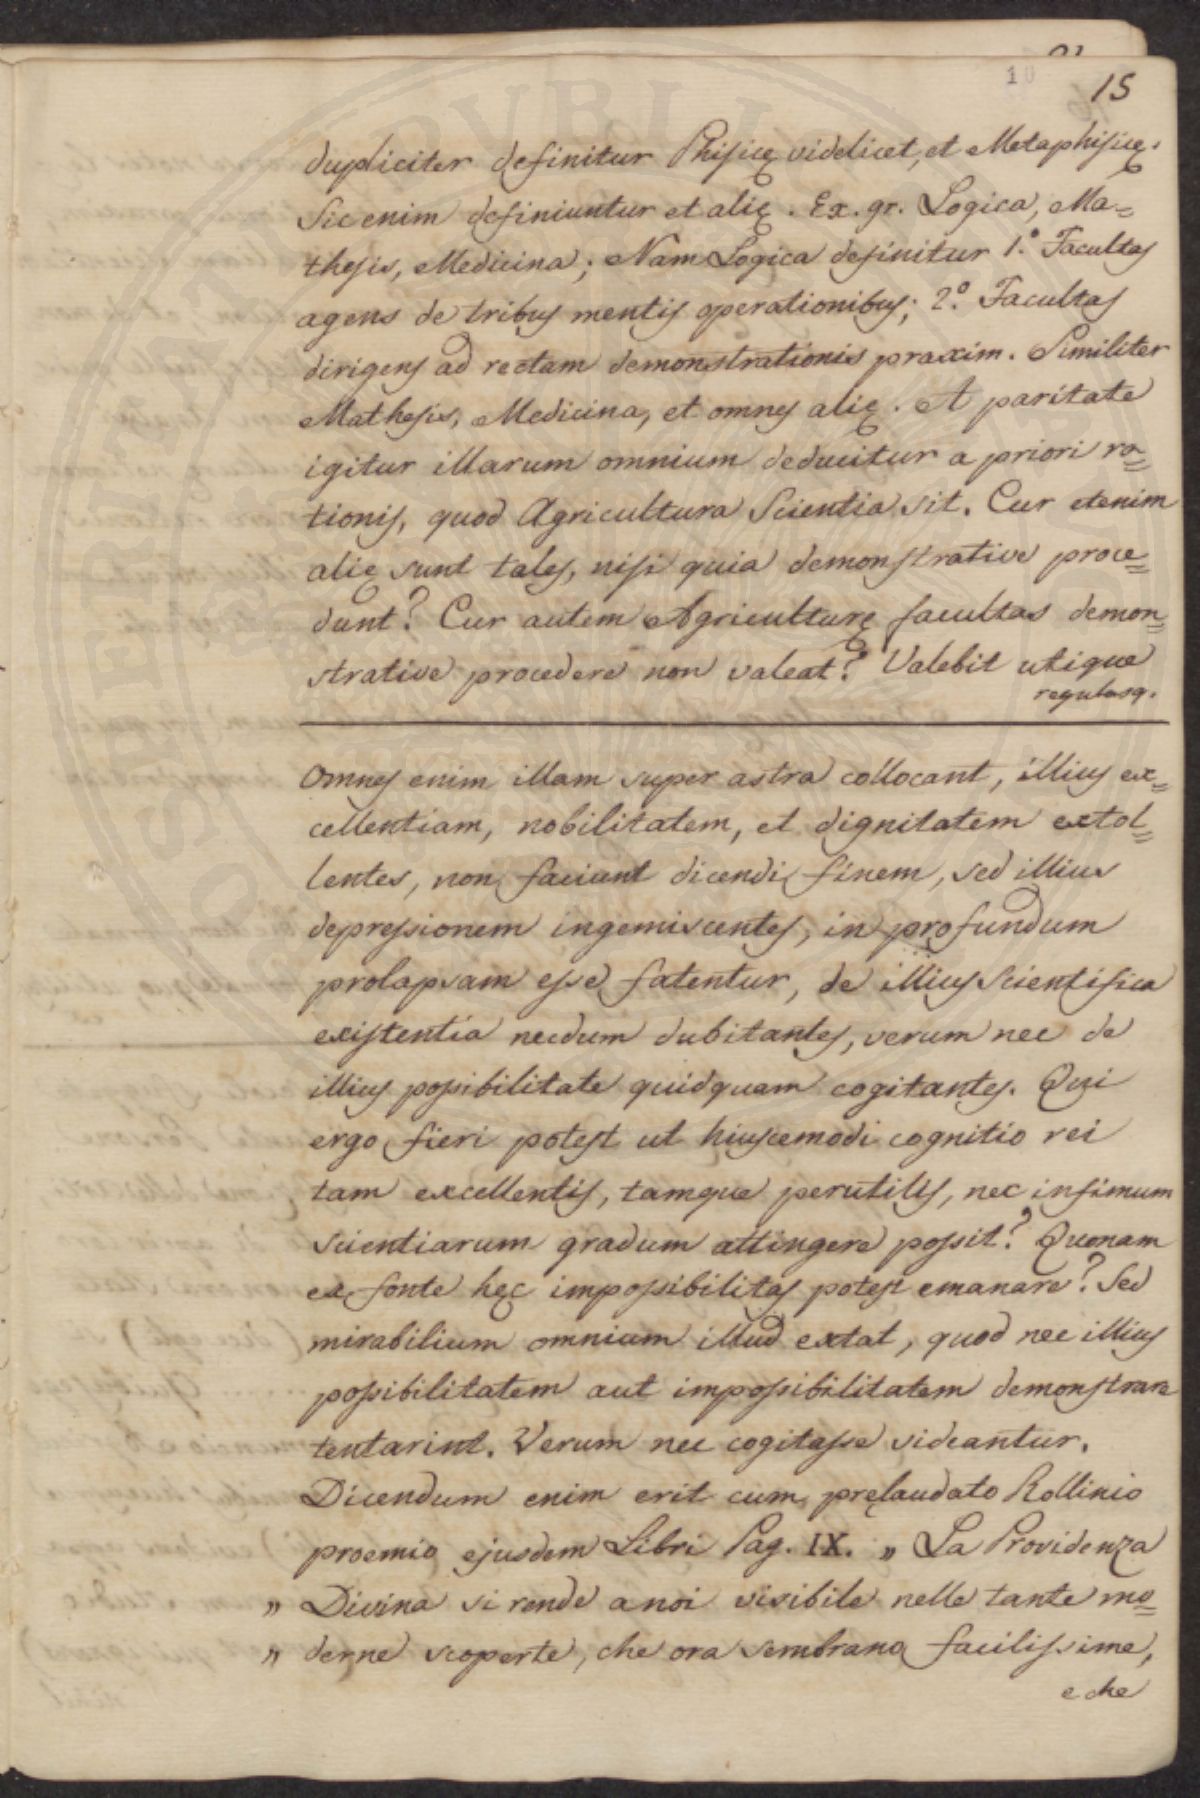 10 15
dupliciter definitur Phisicę videlicet, et Metaphisicę.
Sic enim definiuntur et alię. Ex. gr. Logica, Ma=
thesis, Medicina; Nam Logica definitur 1.° Facultas
agens de tribus mentis operationibus; 2.° Facultas
dirigens ad rectam demonstrationis praxim. Similiter
Mathesis, Medicina, et omnes alię. A paritate
igitur illarum omnium deducitur a priori ra=
tionis, quod Agricultura Scientia sit. Cur etenim
alię sunt tales, nisi quia demonstrative proce=
dunt? Cur autem Agriculturę facultas demon=
strative procedere non valeat? Valebit utique
regulasq.
Omnes enim illam super astra collocant, illius ex=
cellentiam, nobilitatem, et dignitatem extol=
lentes, non faciunt dicendi finem, sed illius
depressionem ingemiscentes, in profundum
prolapsam esse fatentur, de illius Scientifica
existentia necdum dubitantes, verum nec de
illius possibilitate quidquam cogitantes. Qui
ergo fieri potest ut hiuscemodi cognitio rei
tam excellentis, tamque perutilis, nec infimum
scientiarum gradum attingere possit? Quonam
ex fonte hęc impossibilitas potest emanare? Sed
mirabilium omnium illud extat, quod nec illius
possibilitatem aut impossibilitatem demonstrare
tentarint. Verum nec cogitasse videantur.
Dicendum enim erit cum pręlaudato Rollinio
proemio ejusdem Libri Pag. IX. „ La Providenza
„ Divina si rende a noi visibile nelle tante mo=
„ derne scoperte, che ora sembrano facilissime,
e che